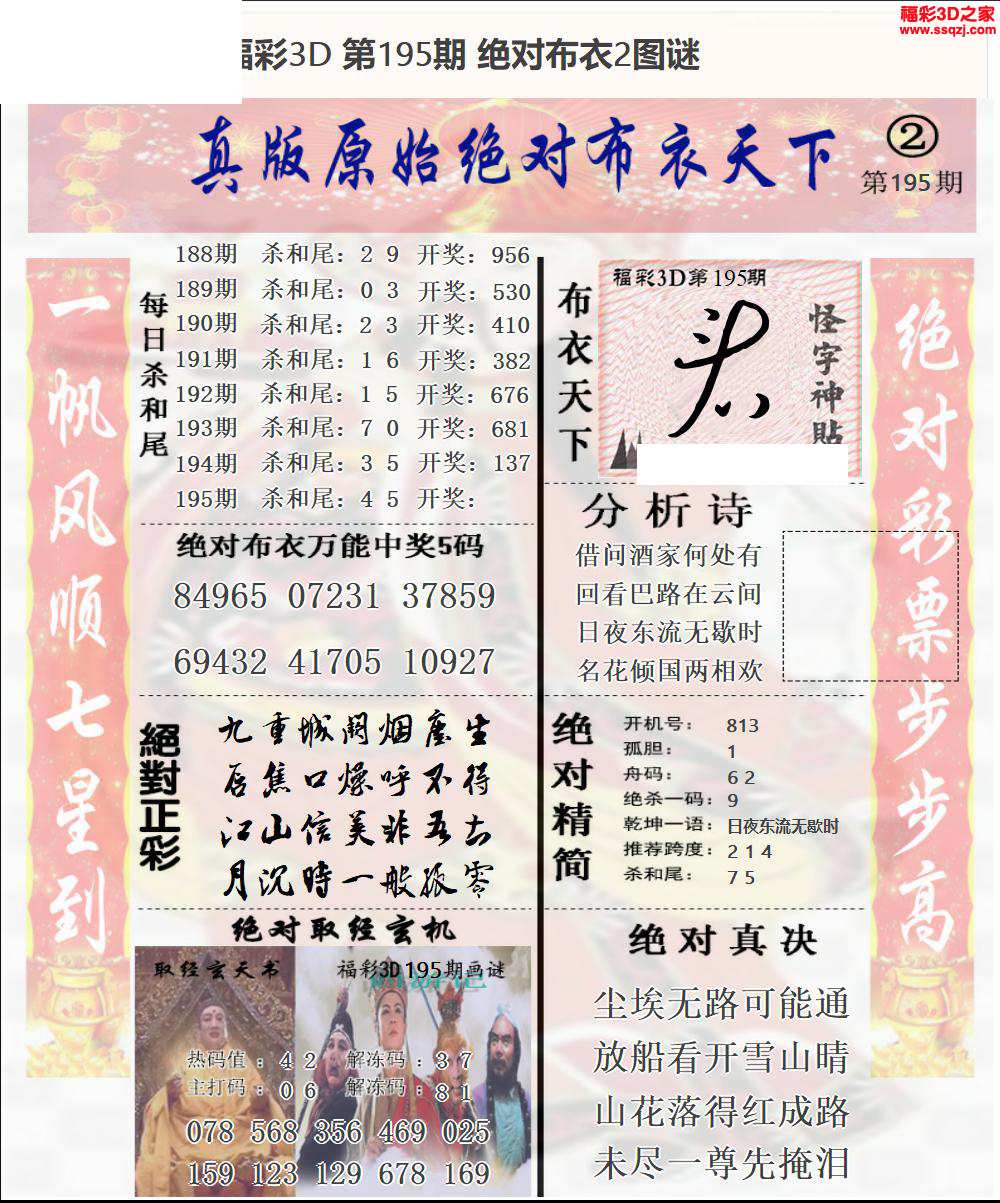 福彩3D之家
www.ssqzj.com
福彩3D 第195期 绝对布衣2图谜
真版原始绝对布衣天下
②
第195期
一帆风顺七星到
每日杀和尾
188期 杀和尾：2 9 开奖：956
189期 杀和尾：0 3 开奖：530
190期 杀和尾：2 3 开奖：410
191期 杀和尾：1 6 开奖：382
192期 杀和尾：1 5 开奖：676
193期 杀和尾：7 0 开奖：681
194期 杀和尾：3 5 开奖：137
195期 杀和尾：4 5 开奖：
绝对布衣万能中奖5码
84965 07231 37859
69432 41705 10927
絕對正彩
九重城阙烟塵生
唇焦口燥呼不得
江山信美非吾土
月沉時一般孤零
绝对取经玄机
取经玄天书
福彩3D195期画谜
热码值：4 2 解冻码：3 7
主打码：0 6 解冻码：8 1
078 568 356 469 025
159 123 129 678 169
布衣天下
福彩3D第195期
怪字神貼
分析诗
借问酒家何处有
回看巴路在云间
日夜东流无歇时
名花倾国两相欢
绝对精简
开机号：813
孤胆：1
舟码：6 2
绝杀一码：9
乾坤一语：日夜东流无歇时
推荐跨度：2 1 4
杀和尾：7 5
绝对真决
尘埃无路可能通
放船看开雪山晴
山花落得红成路
未尽一尊先掩泪
绝对彩票步步高